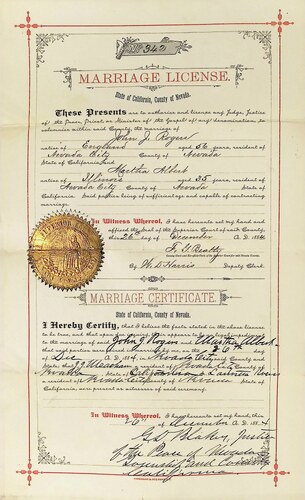 No 342
MARRIAGE LICENSE.
State of California, County of Nevada.
These Presents are to authorize and license any Judge, Justice
of the Peace, Priest or Minister of the Gospel of any denomination, to
solemnize within said County, the marriage of
John J. Rogers
native of England aged 56 years, resident of
Nevada City County of Nevada
State of California, and
Martha Albert
native of Illinois aged 35 years, resident of
Nevada City County of Nevada State of
California. Said parties being of sufficient age and capable of contracting
marriage.
In Witness Whereof, I have hereunto set my hand and
affixed the Seal of the Superior Court of said County,
this 26th day of December A. D. 1884
F. G. Beatty
By W. D. Harris Deputy Clerk
MARRIAGE CERTIFICATE.
State of California, County of Nevada.
I Hereby Certify, that I believe the facts stated in the above license
to be true, and that upon due inquiry there appears to be no legal impediment
to the marriage of said John J Rogers and Martha Albert
that said parties were joined in marriage by me, on the 26
Dec A. D. Nevada City County and
State; that
California
resident of Nevada City County of Nevada State of
California, were present as witnesses of said ceremony.
In Witness Whereof, I have hereunto set my hand, this
26 December A. D. 1884
Geo Blakey Justice
of the Peace of Nevada
Township and County
California